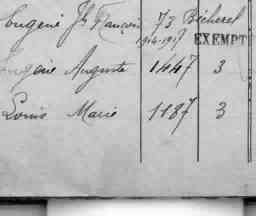 Eugène Jh François 73 Bécherel
1914-1919 EXEMPT
Eugène Auguste 1447 3
Louis Marie 1187 3